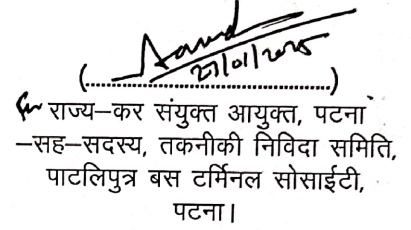 27/01/2025
(................................................)
For राज्य-कर संयुक्त आयुक्त, पटना
-सह-सदस्य, तकनीकी निविदा समिति,
पाटलिपुत्र बस टर्मिनल सोसाईटी,
पटना।